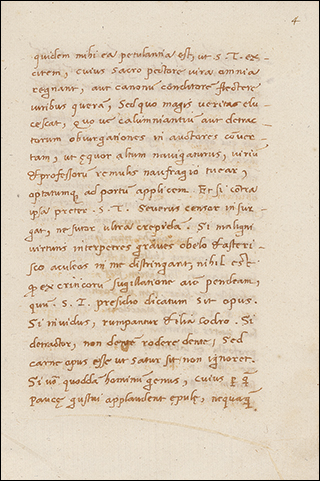 4
quidem mihi ea petulantia est, ut S. T. ex-
citem, cuius sacro pectore vira omnia
regnant, aut canonū conditore flectere
viribus querā, Sed quo magis veritas elu-
cescat, quo ve calumniantiū aut detrac-
torum obiurgationes in auctores conver-
tam, ut ęquor altum navigaturus, viriū
et professorū remulis naufragio tuear,
optatumq ad portū applicem. Et si cōtra
ipsa preter . S. T. Severus censor insur-
gat, ne sutor ultra crepida. Si maligni
virtutis interpretes graves obelo et asteri-
sco aculeos in me distringant, nihil est
q ex crinitorū sugillatione aiō pendeam,
quū S. T. presidio dicatum sit opus.
Si invidus, rumpatur et ilia Codro. Si
detractor, non dente rodere dente, Sed
carne opus esse ut satur sit non ignoret.
Si vō quoddā hominū genus, cuius
Paucę gustui applaudent epulę, nequaq